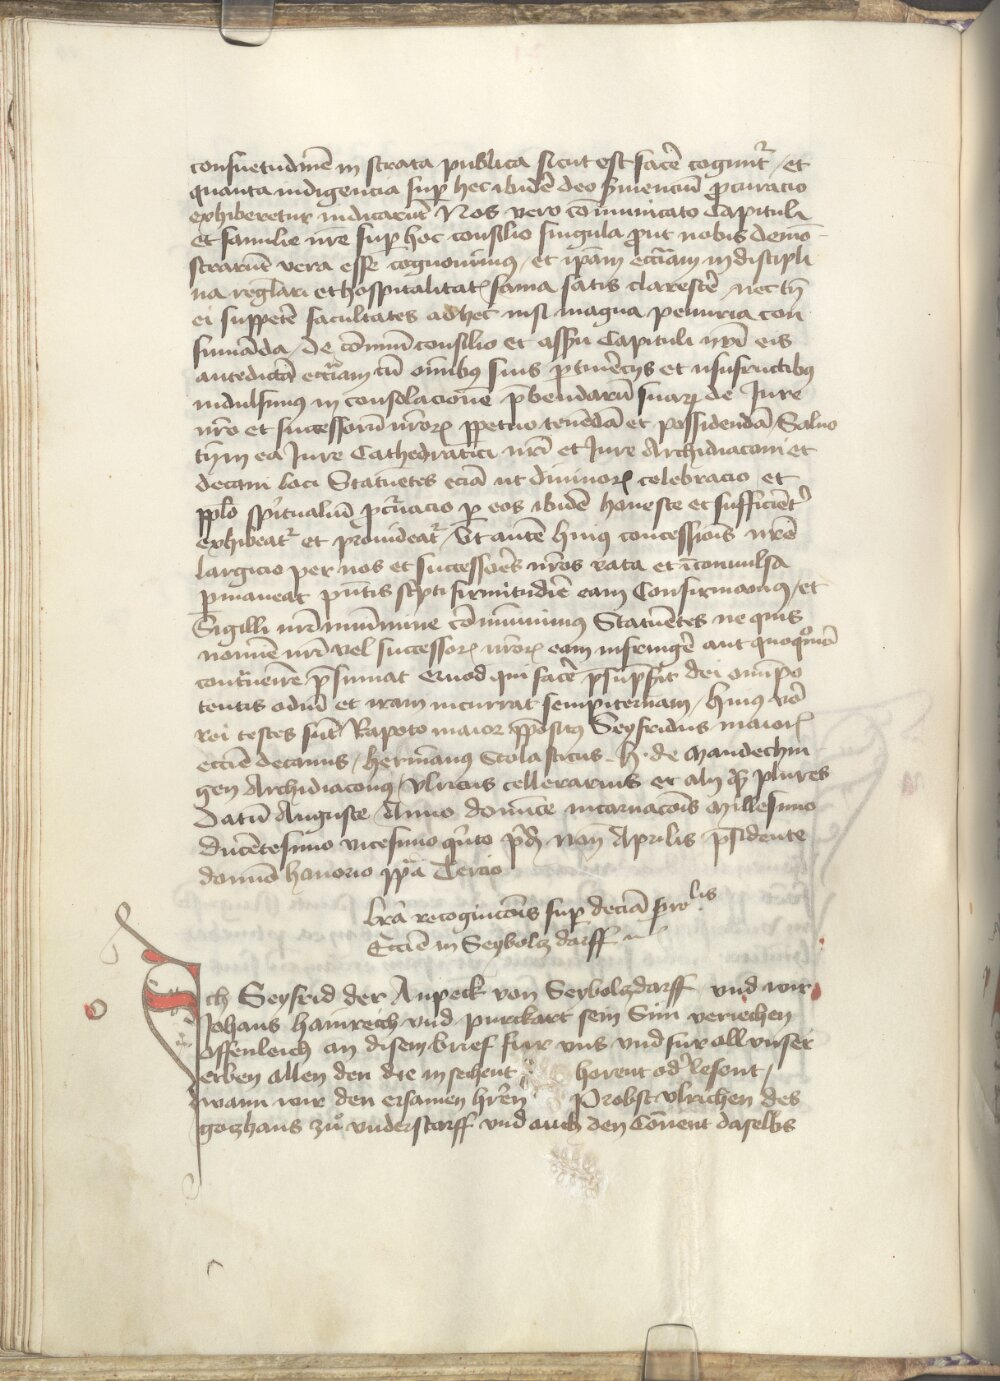 consuetudinē in strata publica sicut est facē cogunt᷑ / et
quanta indigencia sup hec ibidē deo ẜuiencium pcuracio
exhiberetur indicarūt Nos vero cōmunicato Capituli
et familie nr̄e sup hoc consilio singula put nobis demō-
strarūt vera esse cognouimus / et ip̄am eccl̄iam in discipli
na regl̄ari et hospitalitat᷑ fama satis clarescē nec tn̄
ei suppetē facultates adhec nisi magna penuria con
sumāda / de cōmuni consilio et assn̄u Capituli nr̄i eis
antedictā eccl̄iam cū om̄ibus suis ptinēcijs et usufructibus
indulsimus in consolacionē p̄bendarū suarꝝ de Jure
nr̄o et successorū nr̄orꝝ ppetuo tenēdā et possidendā / Saluo
tn̄ in ea Jure Cathedratici nr̄i et Jure Archidiaconi et
decani loci Statuētes eciā ut diuinorꝝ celebracio et
pplo spirtualiū pcuracio p eos ibidē honeste et sufficiēt᷑
exhibeat᷑ et prouideat᷑ / Ut autē huius concessiōis nr̄e
largicio per nos et successorēs nr̄os rata et īconuulsa
pmaneat pn̄tis scpti firmitudīē eam Confirmamus / et
Sigilli nr̄i munimine cōmunimus Statuētes ne quis
nomīe nr̄i vel successorꝝ nr̄orꝝ eam infringē aut quoquomō
conuenirē p̄sumat Quod qui facē psūpsit dei omīpo
tentis odiū et iram incurrat sempiternam / Huius vō
rei testes sūt Rapoto maior ppositus Seyfridus maiorꝝ
eccīe decanus / Hermānus Scolasticus H. de Mandechin
gen Archidiaconus / Ulricus cellerarius et alij qꝫ plures
Datū Auguste / Anno domīce incarnacōis Millesimo
ducētesimo vicesimo qito pd Non Aprilis p̄sidente
domīo honorio ppā Tercio
Lrā recognicōis sup deciā prolis
Eccīe in Seyboltz darff
Ich Seyfrid der Anpeck von Seyboltzdarff vnd wir
Johans hainreich vnd purckart sein Sun veriechen
offenleich an disem brief fur vns vnd fur all vnser
erben allen den die in sechent horent od᷑ lesent /
wann wir den ersamen hr̄en Probst vlrichen des
gotzhaus zů vnderstorff vnd auch den Cōuent daselbs